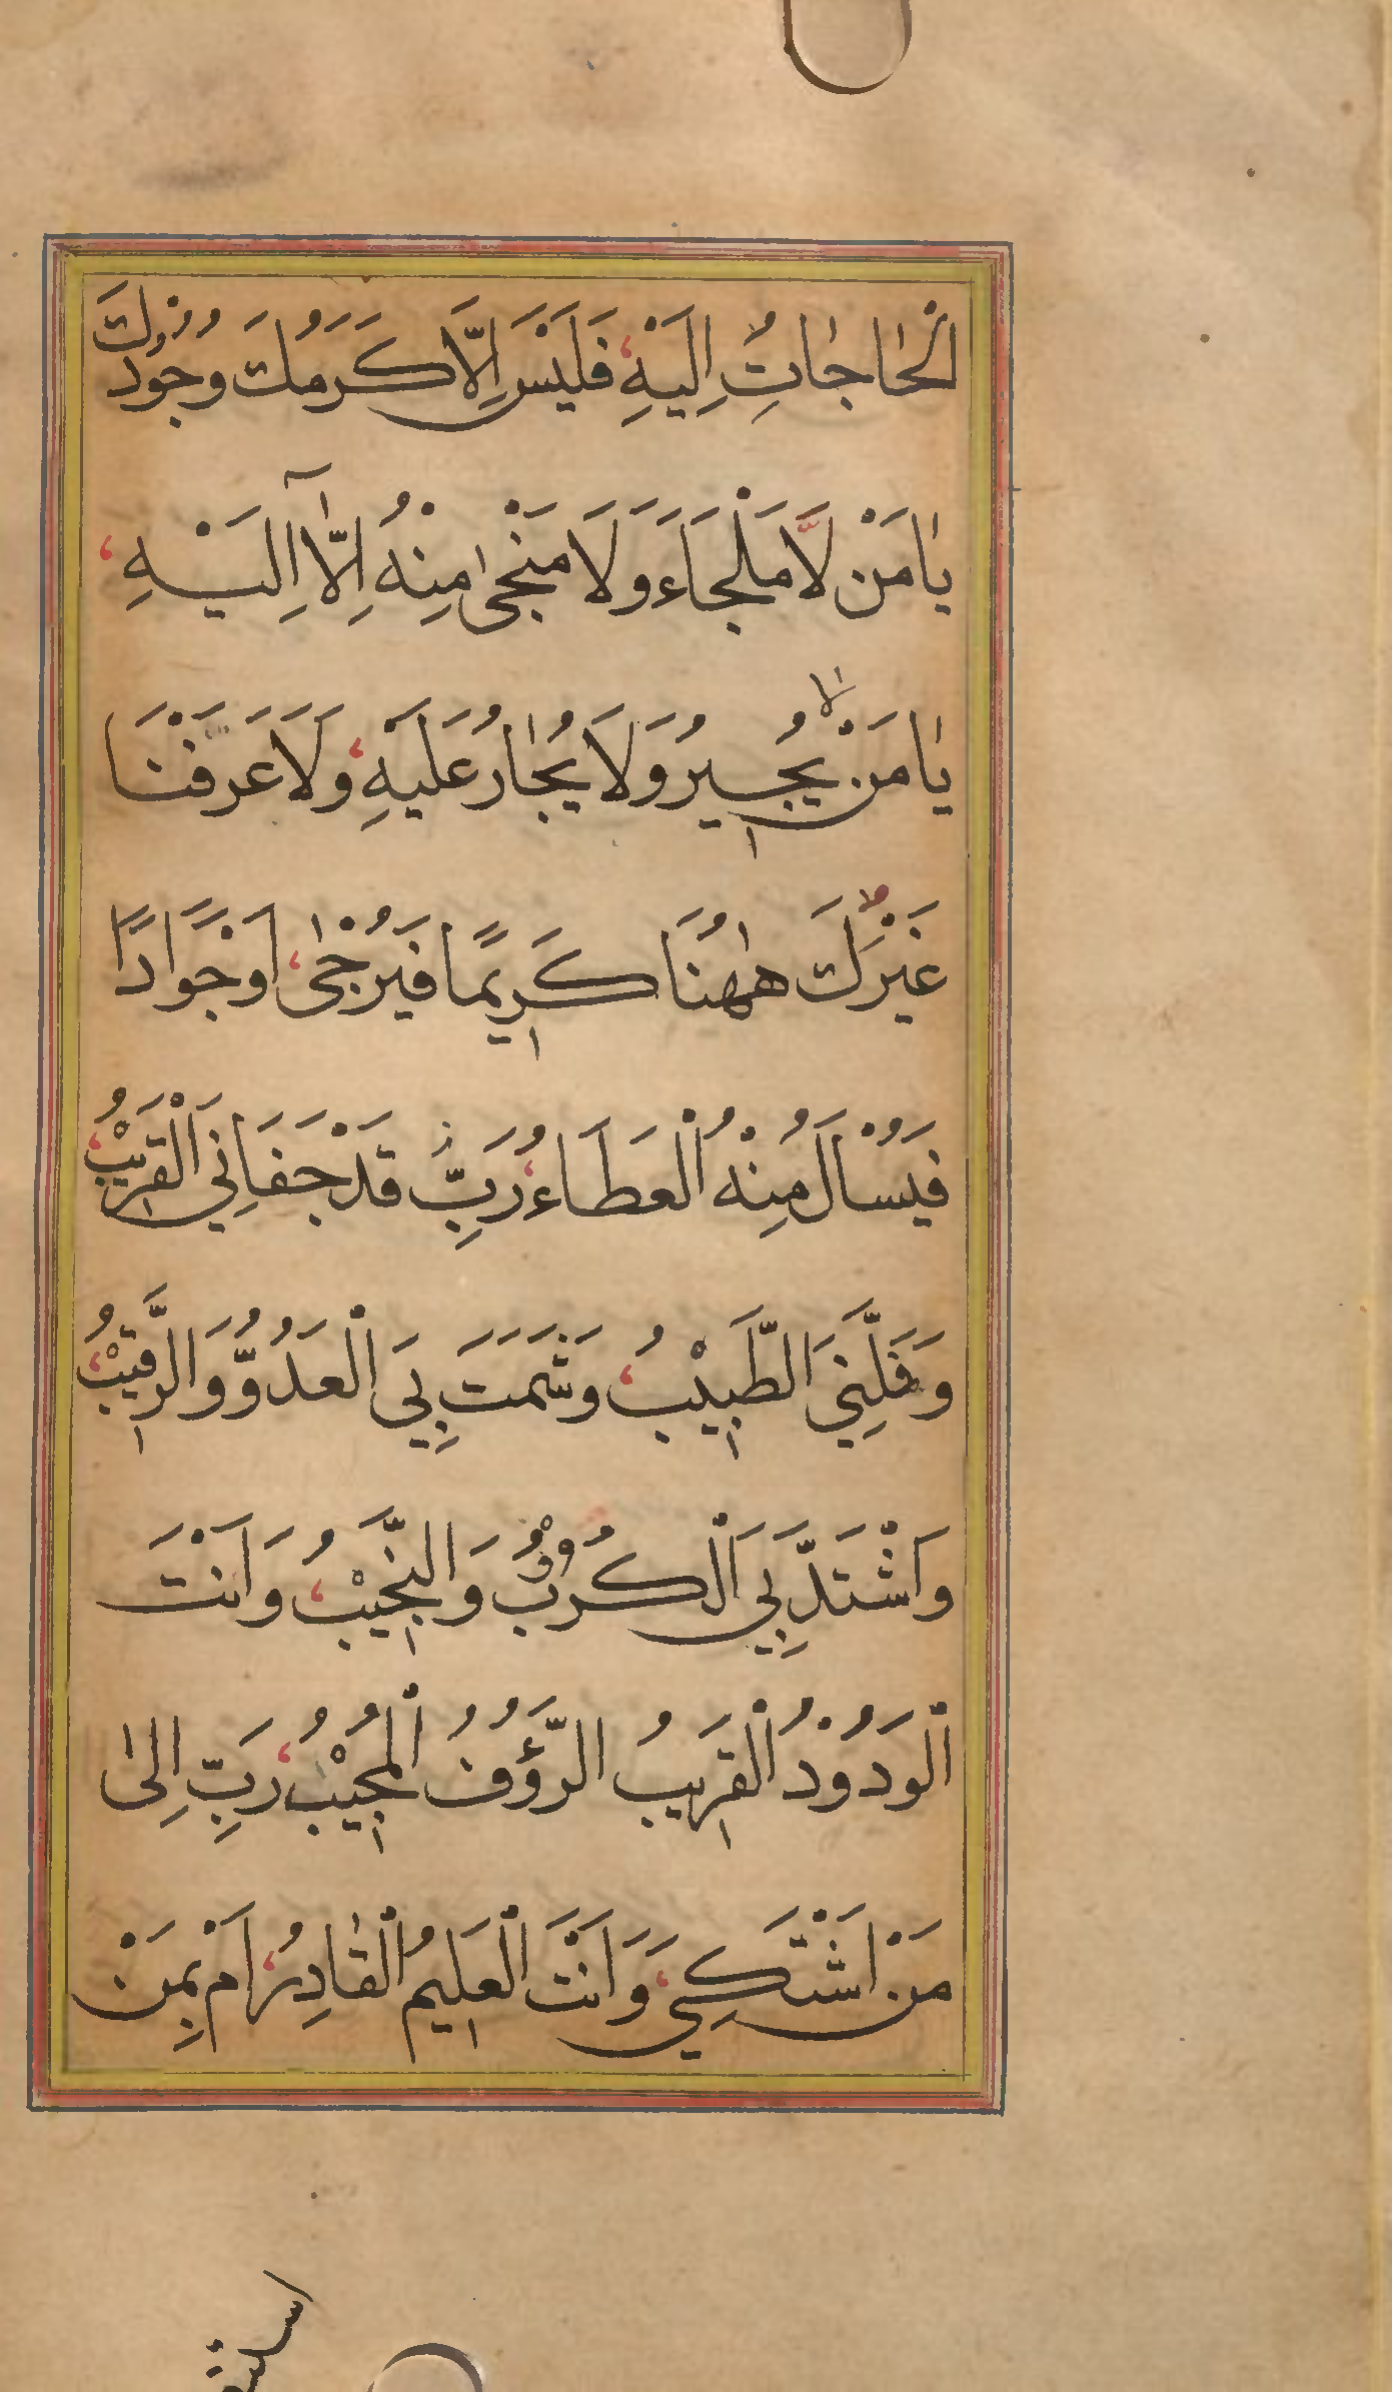 اَلْحٰاجٰاتُ اِلَيْهِ، فَلَيْسَ اِلَّا كَرَمُكَ وَجُوْدُكَ
يٰامَنْ لَّا مَلْجَاءَ وَلَا مَنْجىٰ مِنْهُ اِلَّآ اِلَيْهِ،
يٰامَنْ يُجِيرُ وَلَا يُجٰارُ عَلَيْهِ، وَلَا عَرَفْنَا
غَيْرَكَ هٰهُنَا كَرِيمًا فَيُرْجٰى، اَوْ جَوَادًا
فَيُسْاَلَ مِنْهُ الْعَطَاءُ، رَبِّ قَدْ جَفَانِي الْقَرِيْبُ،
وَمَلَّنِيَ الطَّبِيْبُ، وَشَمَتَ بِيَ الْعَدُوُّ وَالرَّقِيْبُ،
وَاشْتَدَّ بِيَ الْكُرُوْبُ وَالنَّحِيْبُ، وَاَنْتَ
الْوَدُوْدُ الْقَرِيبُ الرَّؤُفُ الْمُجِيْبُ، رَبِّ اِلىٰ
مَنْ اَشْتَكِي، وَاَنْتَ الْعَلِيمُ الْقٰادِرُ، اَمْ بِمَنْ